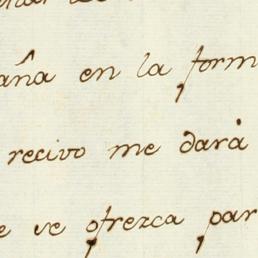 aña en la form
recivo me dará
e se ofrezca par